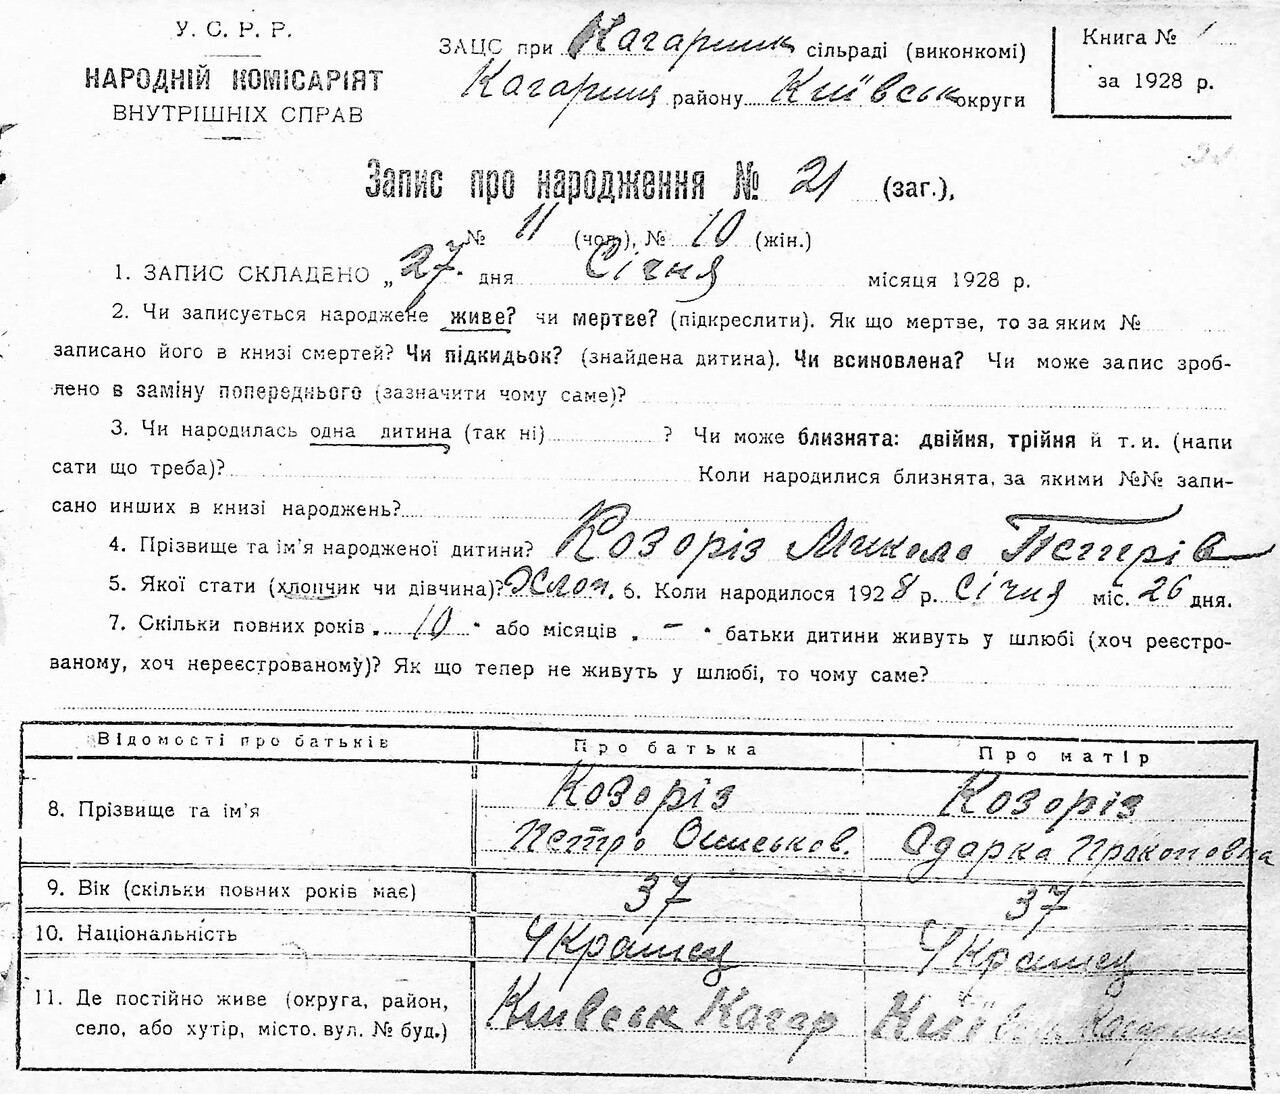 У. С. Р. Р.
НАРОДНІЙ КОМІСАРІЯТ
ВНУТРІШНІХ СПРАВ
ЗАЦС при Кагарлик сільраді (виконкомі)
Кагарлиц району Київськ округи
Книга № 1
за 1928 р.
Запис про народження № 21 (заг.),
№ 11 (чол.), № 10 (жін.)
1. ЗАПИС СКЛАДЕНО „27" дня Січня місяця 1928 р.
2. Чи записується народжене живе? чи мертве? (підкреслити). Як що мертве, то за яким №
записано його в книзі смертей? Чи підкидьок? (знайдена дитина). Чи всиновлена? Чи може запис зроб-
лено в заміну попереднього (зазначити чому саме)?
3. Чи народилась одна дитина (так ні) ? Чи може близнята: двійня, трійня й т. и. (напи
сати що треба)? Коли народилися близнята, за якими №№ запи-
сано инших в книзі народжень?
4. Прізвище та ім'я народженої дитини? Козоріз Микола Петрів
5. Якої стати (хлопчик чи дівчина)? Хлоп. 6. Коли народилося 1928 р. Січня міс. 26 дня.
7. Скільки повних років „ 10 " або місяців „ – " батьки дитини живуть у шлюбі (хоч реєстро-
ваному, хоч нереєстрованому)? Як що тепер не живуть у шлюбі, то чому саме?
Відомості про батьків Про батька Про матір
8. Прізвище та ім'я Козоріз Козоріз
Петро Одарка Прокоповна
9. Вік (скільки повних років має) 37 37
10. Національність Украинец Украинец
11. Де постійно живе (округа, район,
село, або хутір, місто. вул. № буд.) Київськ Кагар Київськ Кагарлик